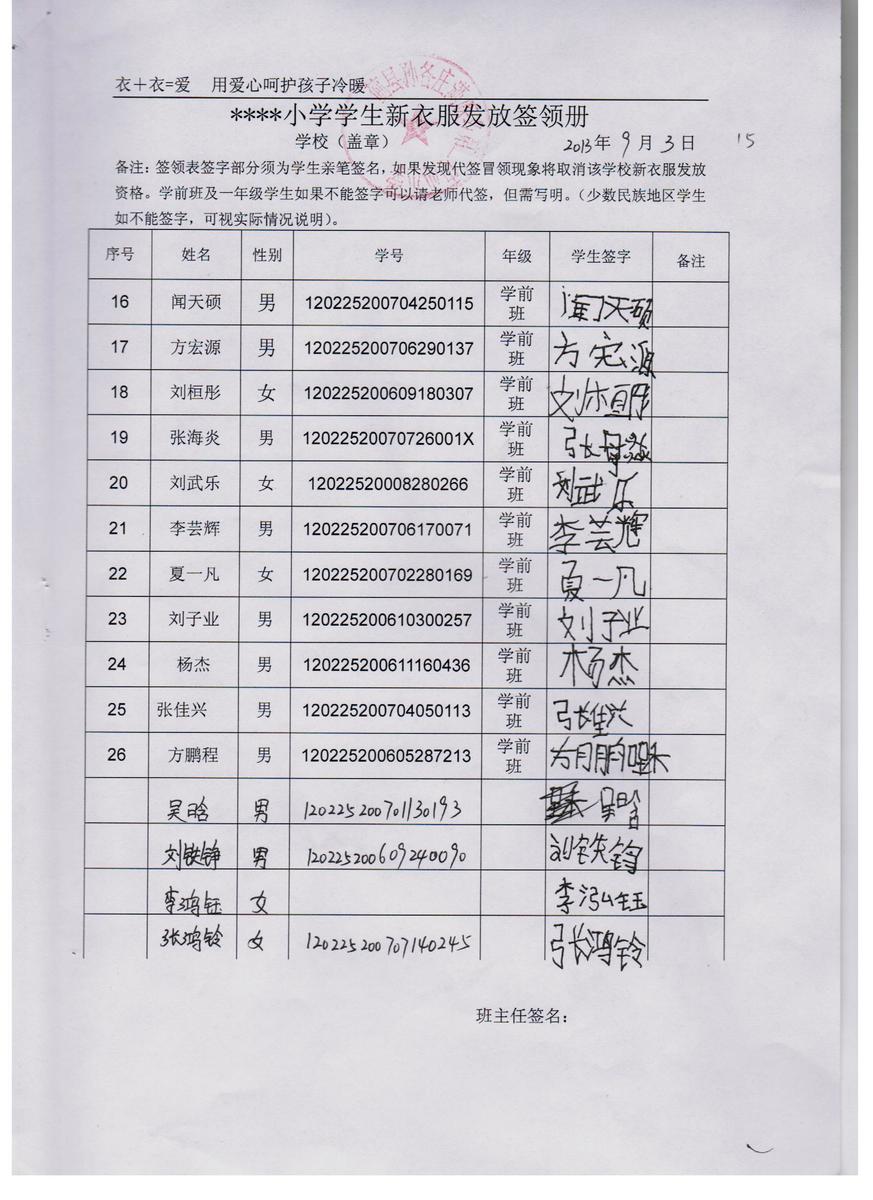 衣+衣=爱 用爱心呵护孩子冷暖
县孙各庄
****小学学生新衣服发放签领册
学校（盖章） 2013年 9 月 3 日 15
备注：签领表签字部分须为学生亲笔签名，如果发现代签冒领现象将取消该学校新衣服发放
资格。学前班及一年级学生如果不能签字可以请老师代签，但需写明。（少数民族地区学生
如不能签字，可视实际情况说明）。
序号 姓名 性别 学号 年级 学生签字 备注
16 闻天硕 男 120225200704250115 学前班 闻天硕
17 方宏源 男 120225200706290137 学前班 方宏源
18 刘桓彤 女 120225200609180307 学前班 刘桓彤
19 张海炎 男 12022520070726001X 学前班 张海炎
20 刘武乐 女 12022520008280266 学前班 刘武乐
21 李芸辉 男 120225200706170071 学前班 李芸辉
22 夏一凡 女 120225200702280169 学前班 夏一凡
23 刘子业 男 120225200610300257 学前班 刘子业
24 杨杰 男 120225200611160436 学前班 杨杰
25 张佳兴 男 120225200704050113 学前班 张佳兴
26 方鹏程 男 120225200605287213 学前班 方鹏程
吴晗 男 120225200701130193 吴晗
刘铁铮 男 120225200609240090 刘铁铮
李鸿钰 女 李泓钰
张鸿铃 女 120225200707140245 张鸿铃
班主任签名：